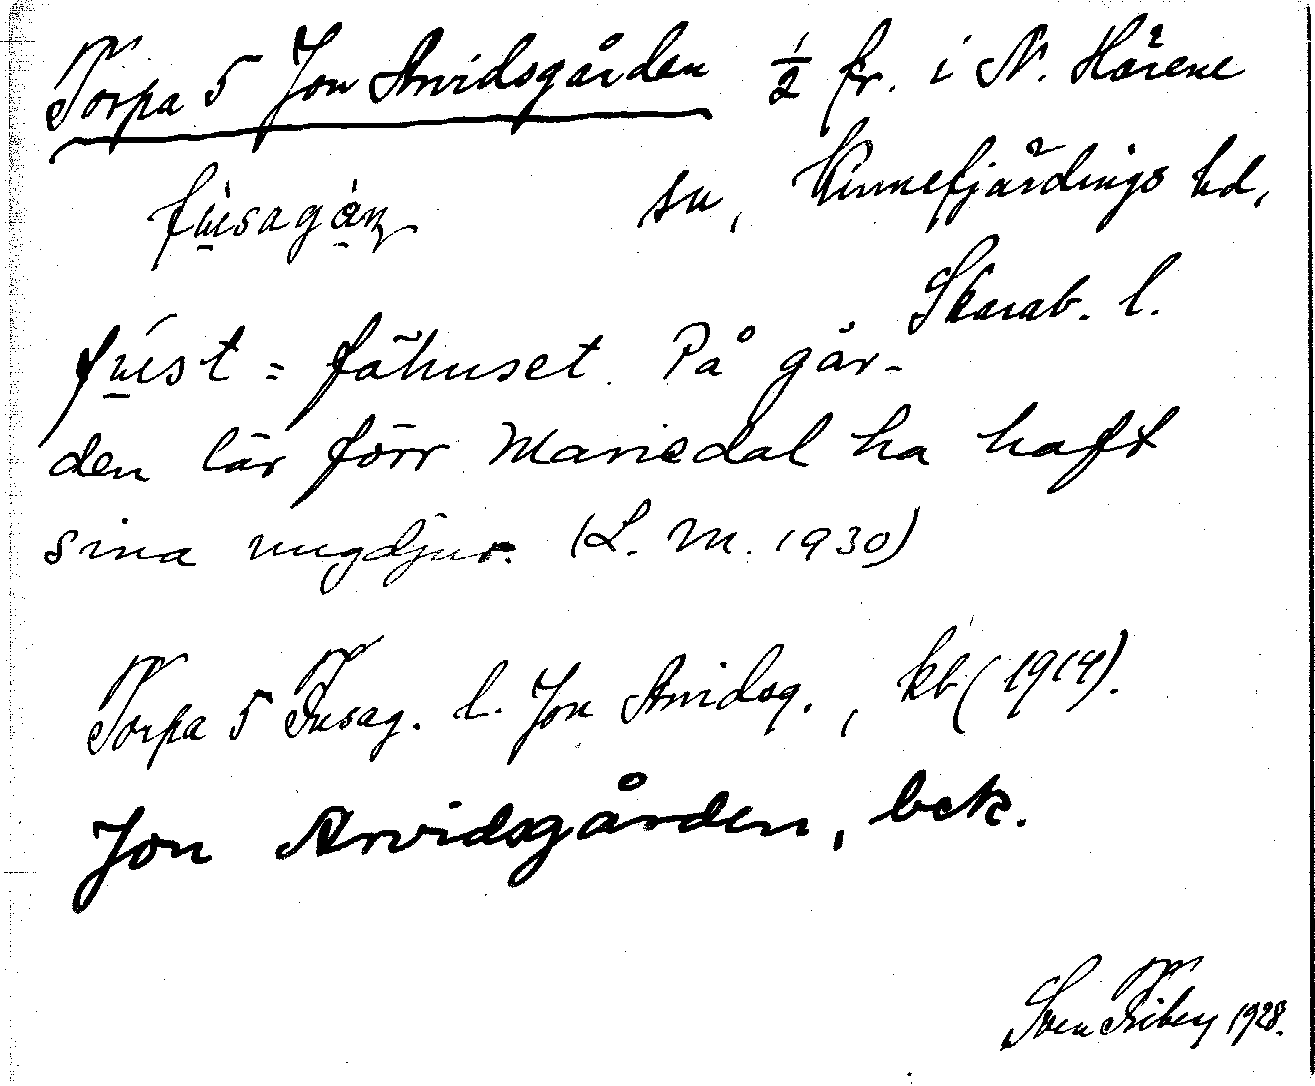 Torpa 5 Jon Arvidsgården ½ fr. i N. Härene
fusagán sn, Kinnefjärdings hd,
Skarab. l.
fust = fähuset. På går-
den lär förr Mariedal ha haft
sina ungdjur. (L. M. 1930)
Torpa 5 Fusag. l. Jon Arvidsg., kb (1914).
Jon Arvidsgården, bek.
Sven Friberg 1928.